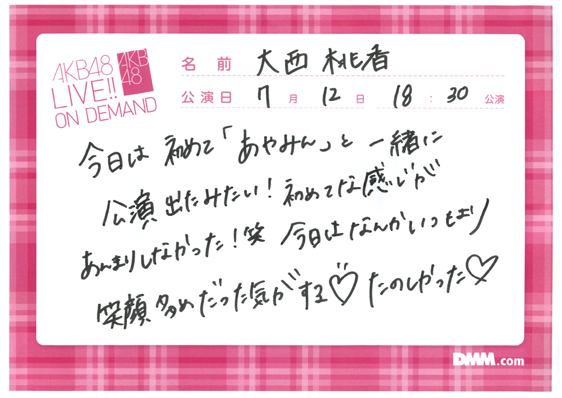 AKB48
LIVE!!
ON DEMAND
AKB
48
名前 大西桃香
公演日 7月12日 18:30公演
今日は初めて「あやみん」と一緒に
公演出たみたい!初めてな感じが
あんまりしなかった!笑 今日はなんかいつもより
笑顔多めだった気がする♡たのしかった♡
DMM.com